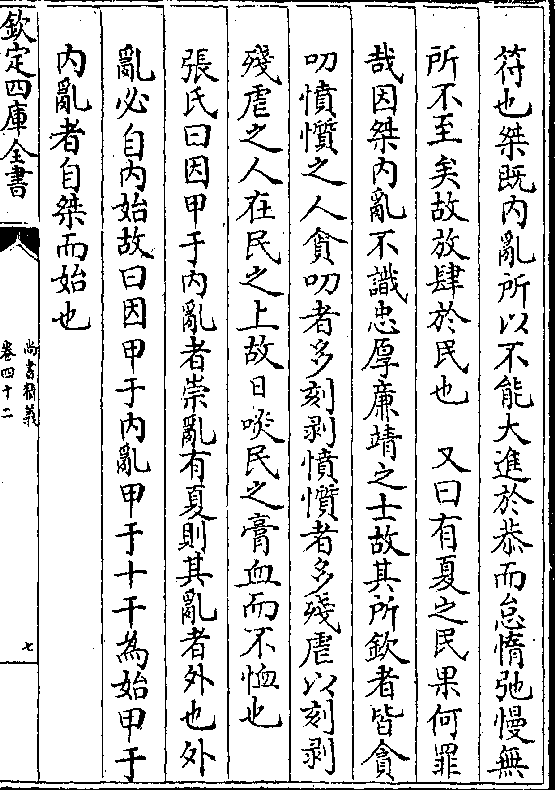 符也桀既内亂所以不能大進於恭而怠惰弛慢無
所不至矣故放肆於民也　又曰有夏之民果何罪
哉因桀内亂不識忠厚亷靖之士故其所欽者皆貪
叨憤懫之人貪叨者多刻剥憤懫者多殘虐以刻剥
殘虐之人在民之上故日啖民之膏血而不恤也
張氏曰因甲于内亂者崇亂有夏則其亂者外也外
亂必自内始故曰因甲于内亂甲于十干為始甲于
内亂者自桀而始也
欽定四庫全書
尚書精義
卷四十二
七